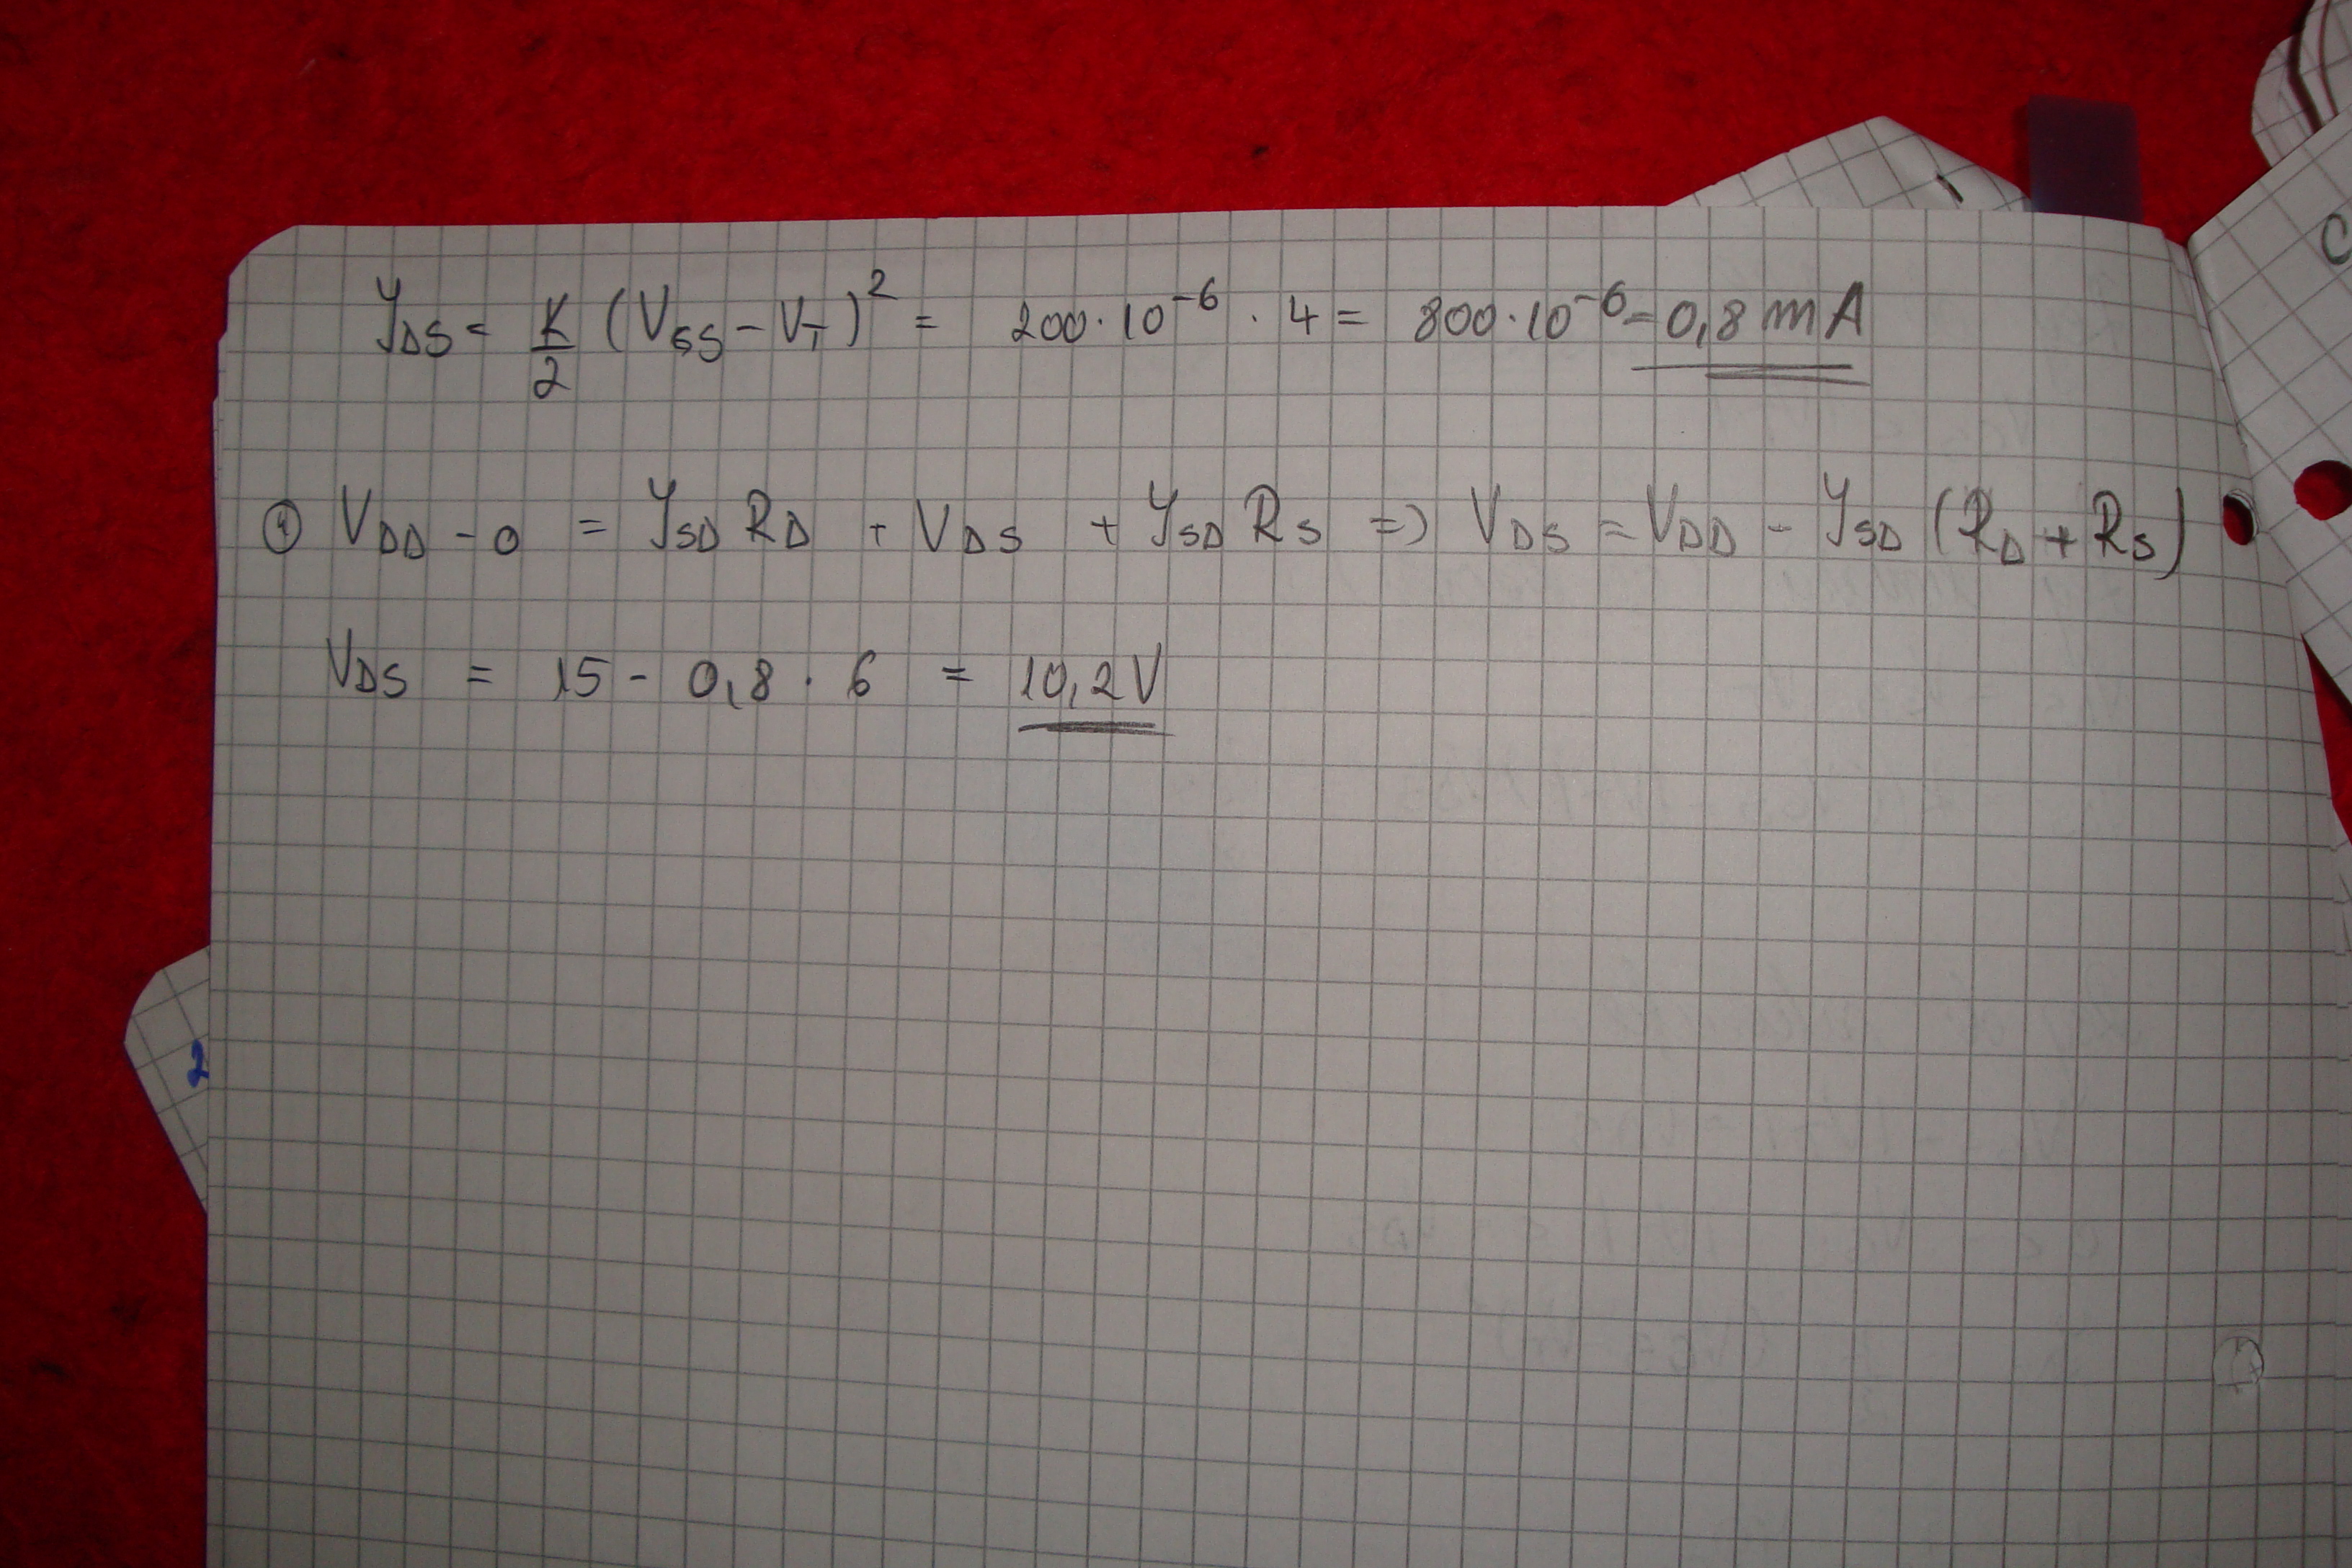 I_DS = K/2 (V_GS - V_T)^2 = 200·10^-6 · 4 = 800·10^-6 = 0,8 mA
① V_DD - 0 = I_SD R_D + V_DS + I_SD R_S => V_DS = V_DD - I_SD (R_D + R_S)
V_DS = 15 - 0,8 · 6 = 10,2V
2
C